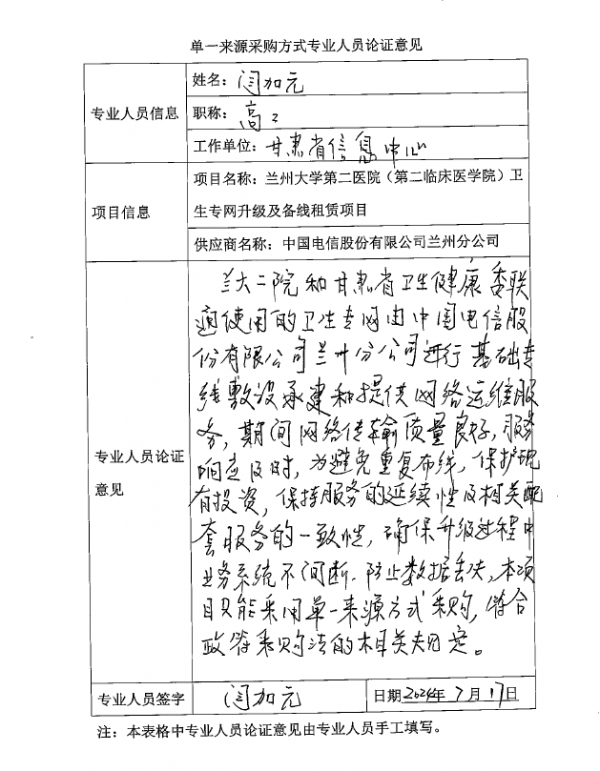 单一来源采购方式专业人员论证意见
专业人员信息
姓名：闫加元
职称：高工
工作单位：甘肃省信息中心
项目信息
项目名称：兰州大学第二医院（第二临床医学院）卫
生专网升级及备线租赁项目
供应商名称：中国电信股份有限公司兰州分公司
专业人员论证
意见
兰大二院和甘肃省卫生健康委联
通使用的卫生专网由中国电信股
份有限公司兰州分公司进行基础专
线敷设承建和提供网络运维服
务，期间网络传输质量良好，服务
响应及时，为避免重复布线，保护现
有投资，保持服务的延续性及相关配
套服务的一致性，确保升级过程中
业务系统不间断，防止数据丢失，本项
目只能采用单一来源方式采购，符合
政府采购法的相关规定。
专业人员签字
闫加元
日期2024年7月17日
注：本表格中专业人员论证意见由专业人员手工填写。